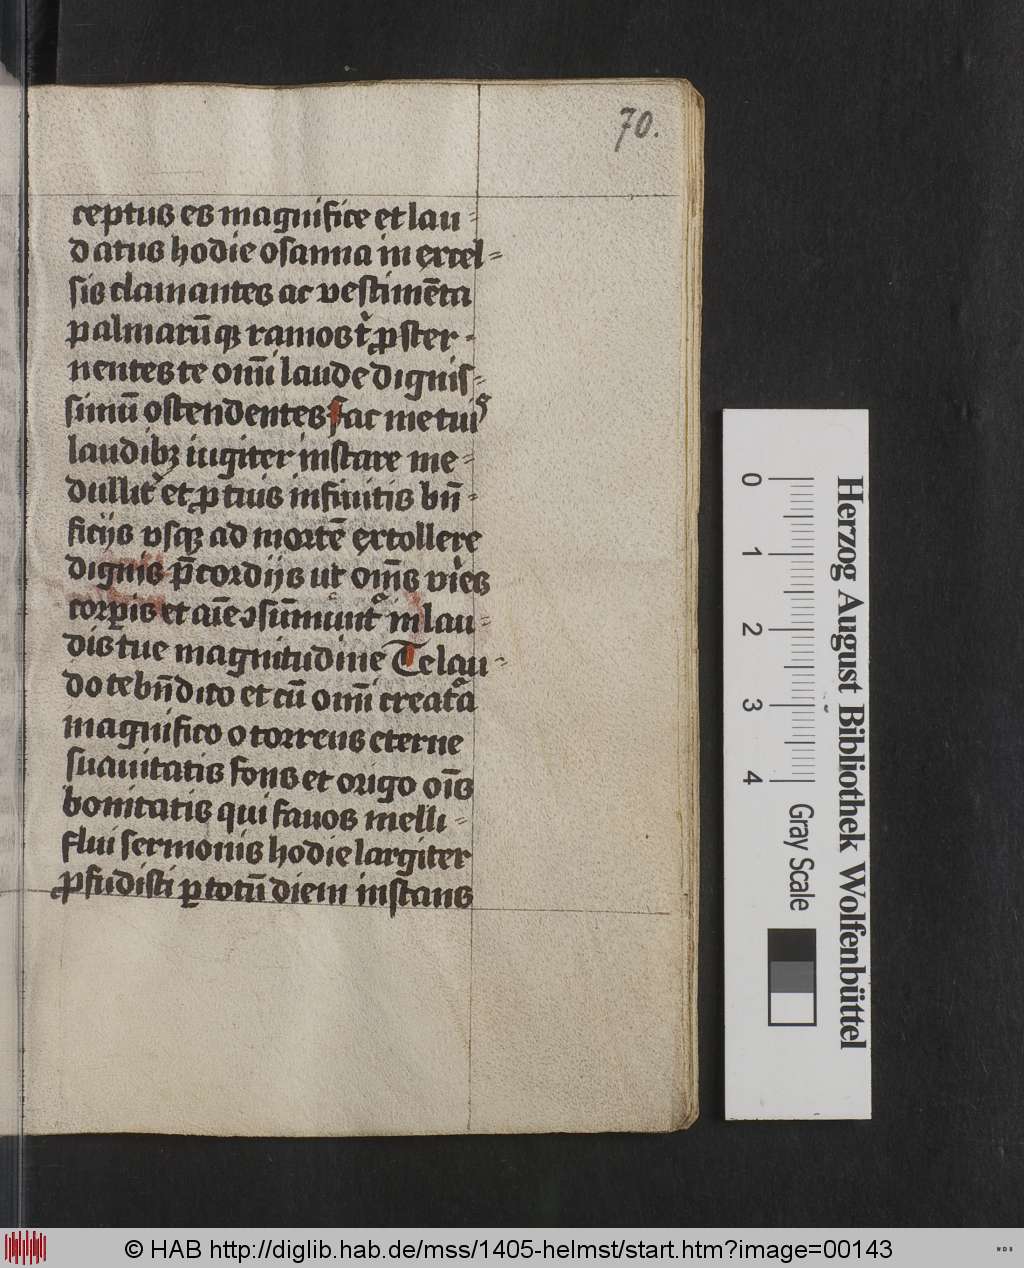 70.
ceptus es magnifice et lau-
datus hodie osanna in excel-
sis clamantes ac vestimēta
palmarūqꝫ ramos t̉ ꝓster-
nentes te om̄i laude dignis-
simū ostendentes Fac me tuiˢ
laudibꝫ iugiter instare me-
dullit̉ et ꝓ tuis infinitis bn̄-
ficijs vsqꝫ ad mortē extollere
dignis p̄cordijs ut om̄s vires
corꝑis et aīe ꝯsūmunt᷑ in lau-
dis tue magnitudine Te lau-
do te bn̄dico et cū om̄i creatᷓa
magnifico o torrens eterne
suauitatis fons et origo oīs
bonitatis qui fauos melli-
flui sermonis hodie largiter
ꝓfudisti ꝑ totū diem instans
Herzog August Bibliothek Wolfenbüttel
0 1 2 3 4
Gray Scale
© HAB http://diglib.hab.de/mss/1405-helmst/start.htm?image=00143